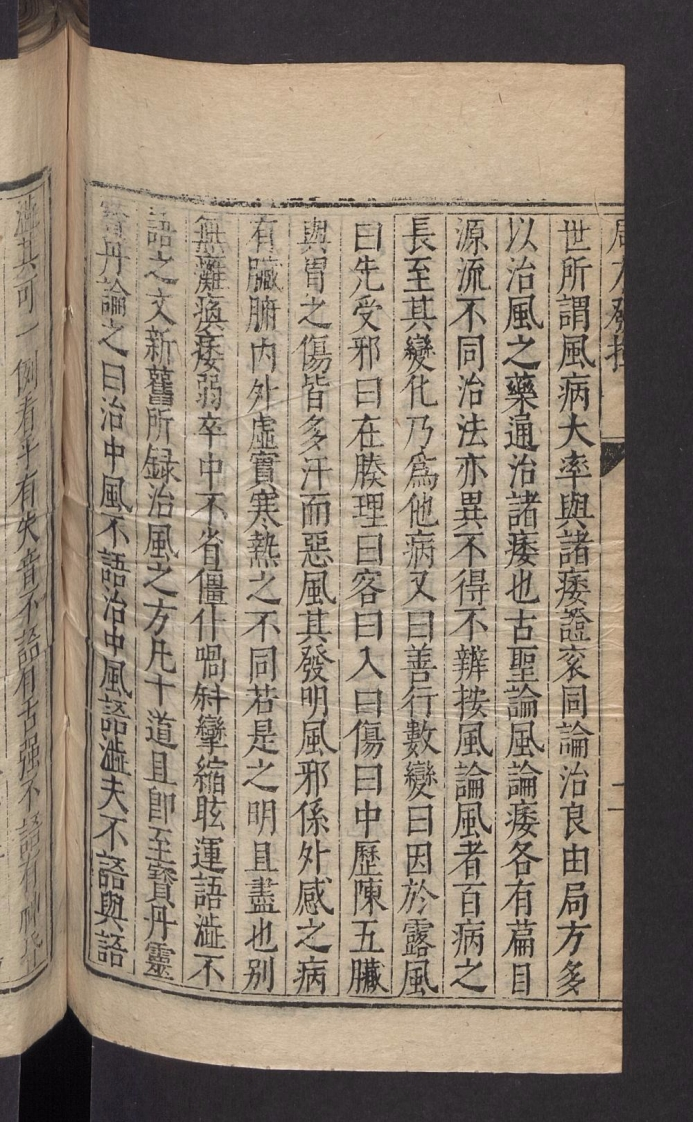 局方發揮
二
世所謂風病大率與諸痿證衮同論治良由局方多
以治風之藥通治諸痿也古聖論風論痿各有萹目
源流不同治法亦異不得不辨按風論風者百病之
長至其變化乃爲他病又曰善行數變曰因於露風
曰先受邪曰在腠理曰客曰入曰傷曰中歷陳五臟
與胃之傷皆多汗而惡風其發明風邪係外感之病
有臟腑内外虛實寒熱之不同若是之明且盡也别
無癱瘓痿弱卒中不省僵仆喎斜攣縮眩運語澁不
語之文新舊所録治風之方凡十道且即至寳丹靈
寳丹論之曰治中風不語治中風語澁夫不語與語
澁其可一例看乎有失音不語有舌强不語有神昏